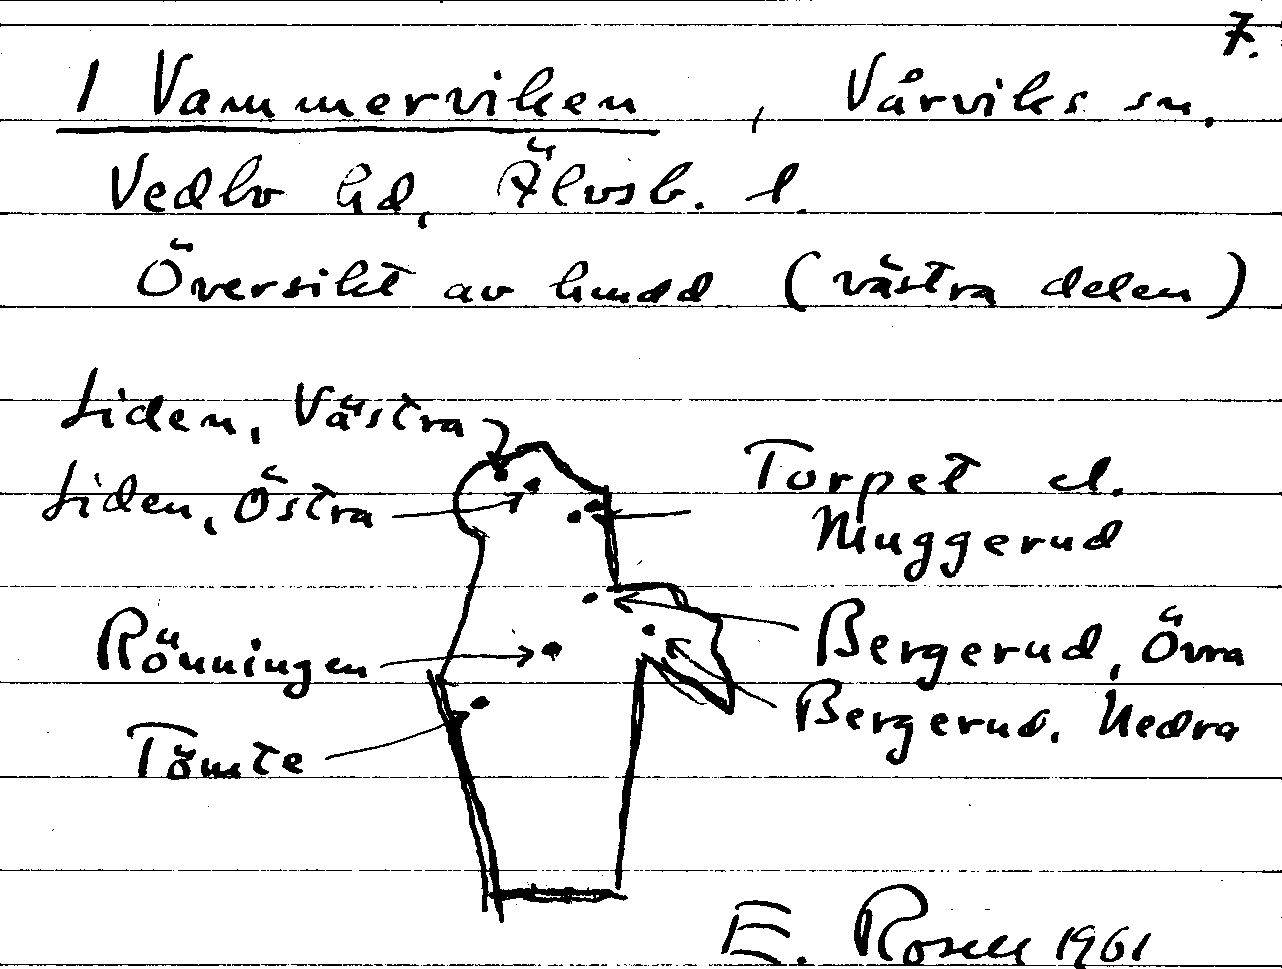 7.
1 Vammerviken, Vårviks sn.
Vedbo hd, Älvsb. l.
Översikt av hmdd (västra delen)
Liden, Västra
Liden, Östra
Torpet el.
Muggerud
Rönningen
Bergerud, Övra
Bergerud, Nedra
Tömte
E. Rosell 1961